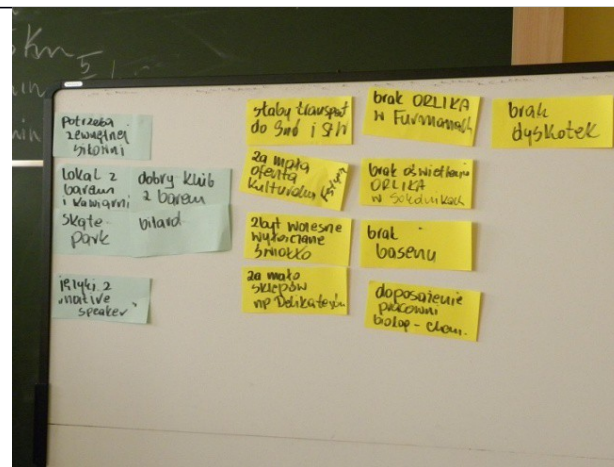 Km
5
min
min
potrzeba
zewnętrznej
siłowni
lokal z
barem
i kawiarni
dobry klub
z barem
skate-
park
bilard
języki z
"native
speaker"
słaby transport
do
za mała
oferta
kulturalna
zbyt wczesne
wyłączane
światło
za mało
sklepów
np Delikatesów
brak ORLIKA
w Furmanach
brak oświetlenia
ORLIKA
w Sokolnikach
brak
basenu
doposażenie
pracowni
biolog-chem.
brak
dyskotek